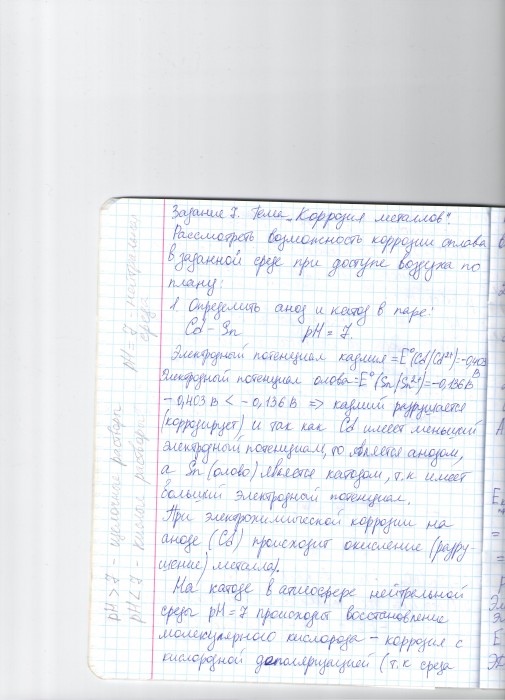 Задание 7. Тема „Коррозия металлов“
Рассмотреть возможность коррозии сплава
в заданной среде при доступе воздуха по
плану:
1. Определить анод и катод в паре:
Cd – Sn pH = 7.
Электродный потенциал кадмия = E°(Cd/Cd²⁺) = -0,403
В
Электродный потенциал олова = E°(Sn/Sn²⁺) = -0,136 В
-0,403 В < -0,136 В => кадмий разрушается
(корродирует) и так как Cd имеет меньший
электродный потенциал, то является анодом,
а Sn (олово) является катодом, т.к имеет
больший электродный потенциал.
При электрохимической коррозии на
аноде (Cd) происходит окисление (разру-
шение) металла.
На катоде в атмосфере нейтральной
среды pH = 7 происходит восстановление
молекулярного кислорода – коррозия с
кислородной деполяризацией (т.к среда
pH = 7 - нейтральная
среда
pH > 7 - щелочные растворы
pH < 7 - кислые растворы